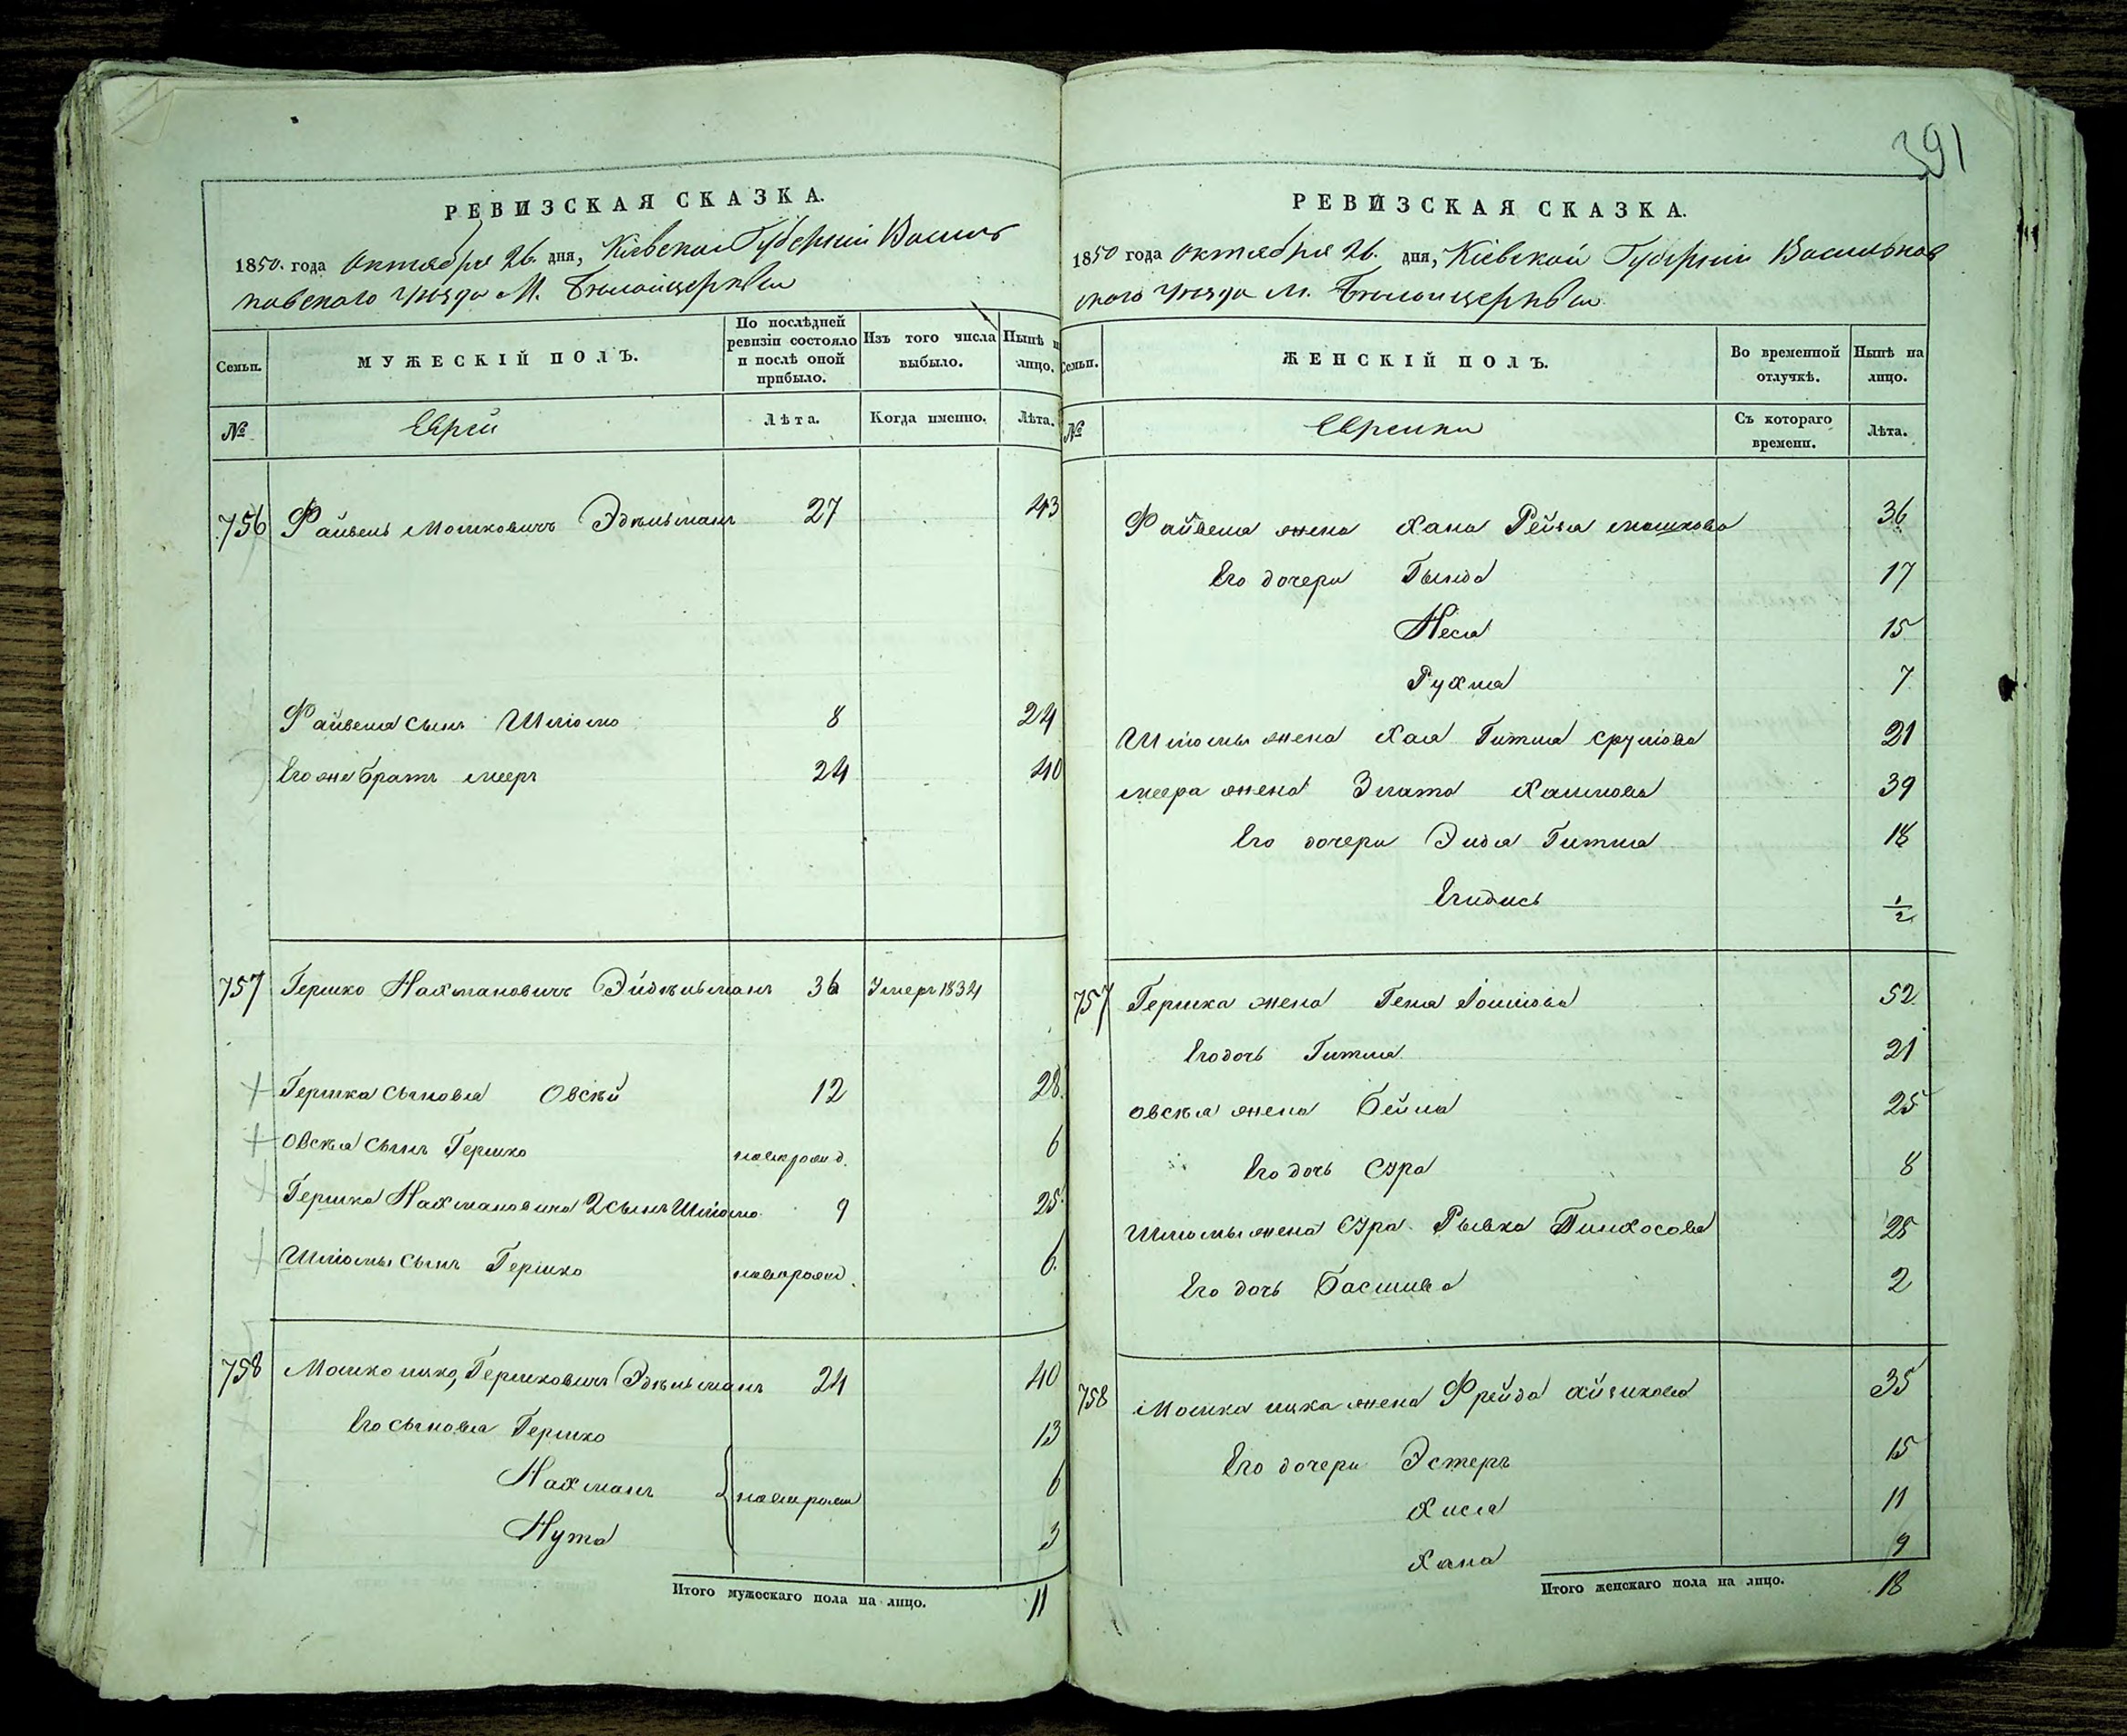 391
РЕВИЗСКАЯ СКАЗКА.
1850. года Октября 26. дня, Кіевской Губерніи Василь
ковскаго уѣзда М. Бѣлойцеркви
Семьи.
МУЖЕСКІЙ ПОЛЪ.
По послѣдней ревизіи состояло и послѣ оной прибыло.
Изъ того числа выбыло.
Нынѣ н лицо.
№
Евреи
Лѣта.
Когда именно.
Лѣта.
756 Файвель Мошковичъ Эдельманъ 27 43
Файвеля сынъ Шліомо 8 24
Его же братъ Мееръ 24 40
757 Гершко Нахмановичъ Эйдельманъ 36 Умеръ 1834
Гершка сыновья Овсѣй 12 28.
Овсѣя сынъ Гершко новорожд. 6
Гершка Нахмановича 2 сынъ Шліомо 9 25.
Шліомы сынъ Гершко новорожд. 6.
758 Мошко Ицко, Гершковичъ Эдельманъ 24 40
Его сыновья Гершко 13
Нахманъ новорожд 6
Нута 3
Итого мужескаго пола на лицо. 11
РЕВИЗСКАЯ СКАЗКА.
1850 года Октября 26. дня, Кіевской Губерніи Васильков
скаго уѣзда М. Бѣлойцеркви
Семьи.
ЖЕНСКІЙ ПОЛЪ.
Во временной отлучкѣ.
Нынѣ на лицо.
№
Еврейки
Съ котораго времени.
Лѣта.
Файвеля жена Хана Рейза Мошкова 36
Его дочери Гинда 17
Неся 15
Рухля 7
Шліомы жена Хая Гитля Сруліова 21
Меера жена Злата Хаимова 39
Его дочери Эйдя Гитля 18
½
757 Гершка жена Геня 52
Его дочь Гитля 21
Овсѣя жена Бейла 25
Его дочь Сура 8
Шліомы жена Сура Рывка Пинхосова 25
Его дочь Басшива 2
758 Мошка Ицка жена Фрейда Айзикова 35
Его дочери Эстеръ 15
Хися 11
Хана 9
Итого женскаго пола на лицо. 18